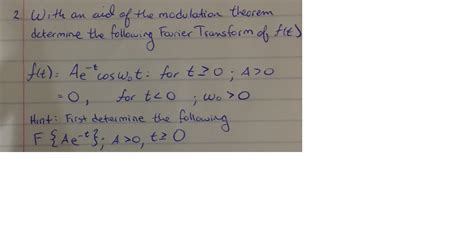 2. With an aid of the modulation theorem
determine the following Fourier Transform of f(t)
f(t) = Ae^-t cos ω₀t : for t ≥ 0 ; A>0
= 0 , for t<0 ; ω₀ >0
Hint: First determine the following
F {Ae^-t}; A >0, t ≥ 0